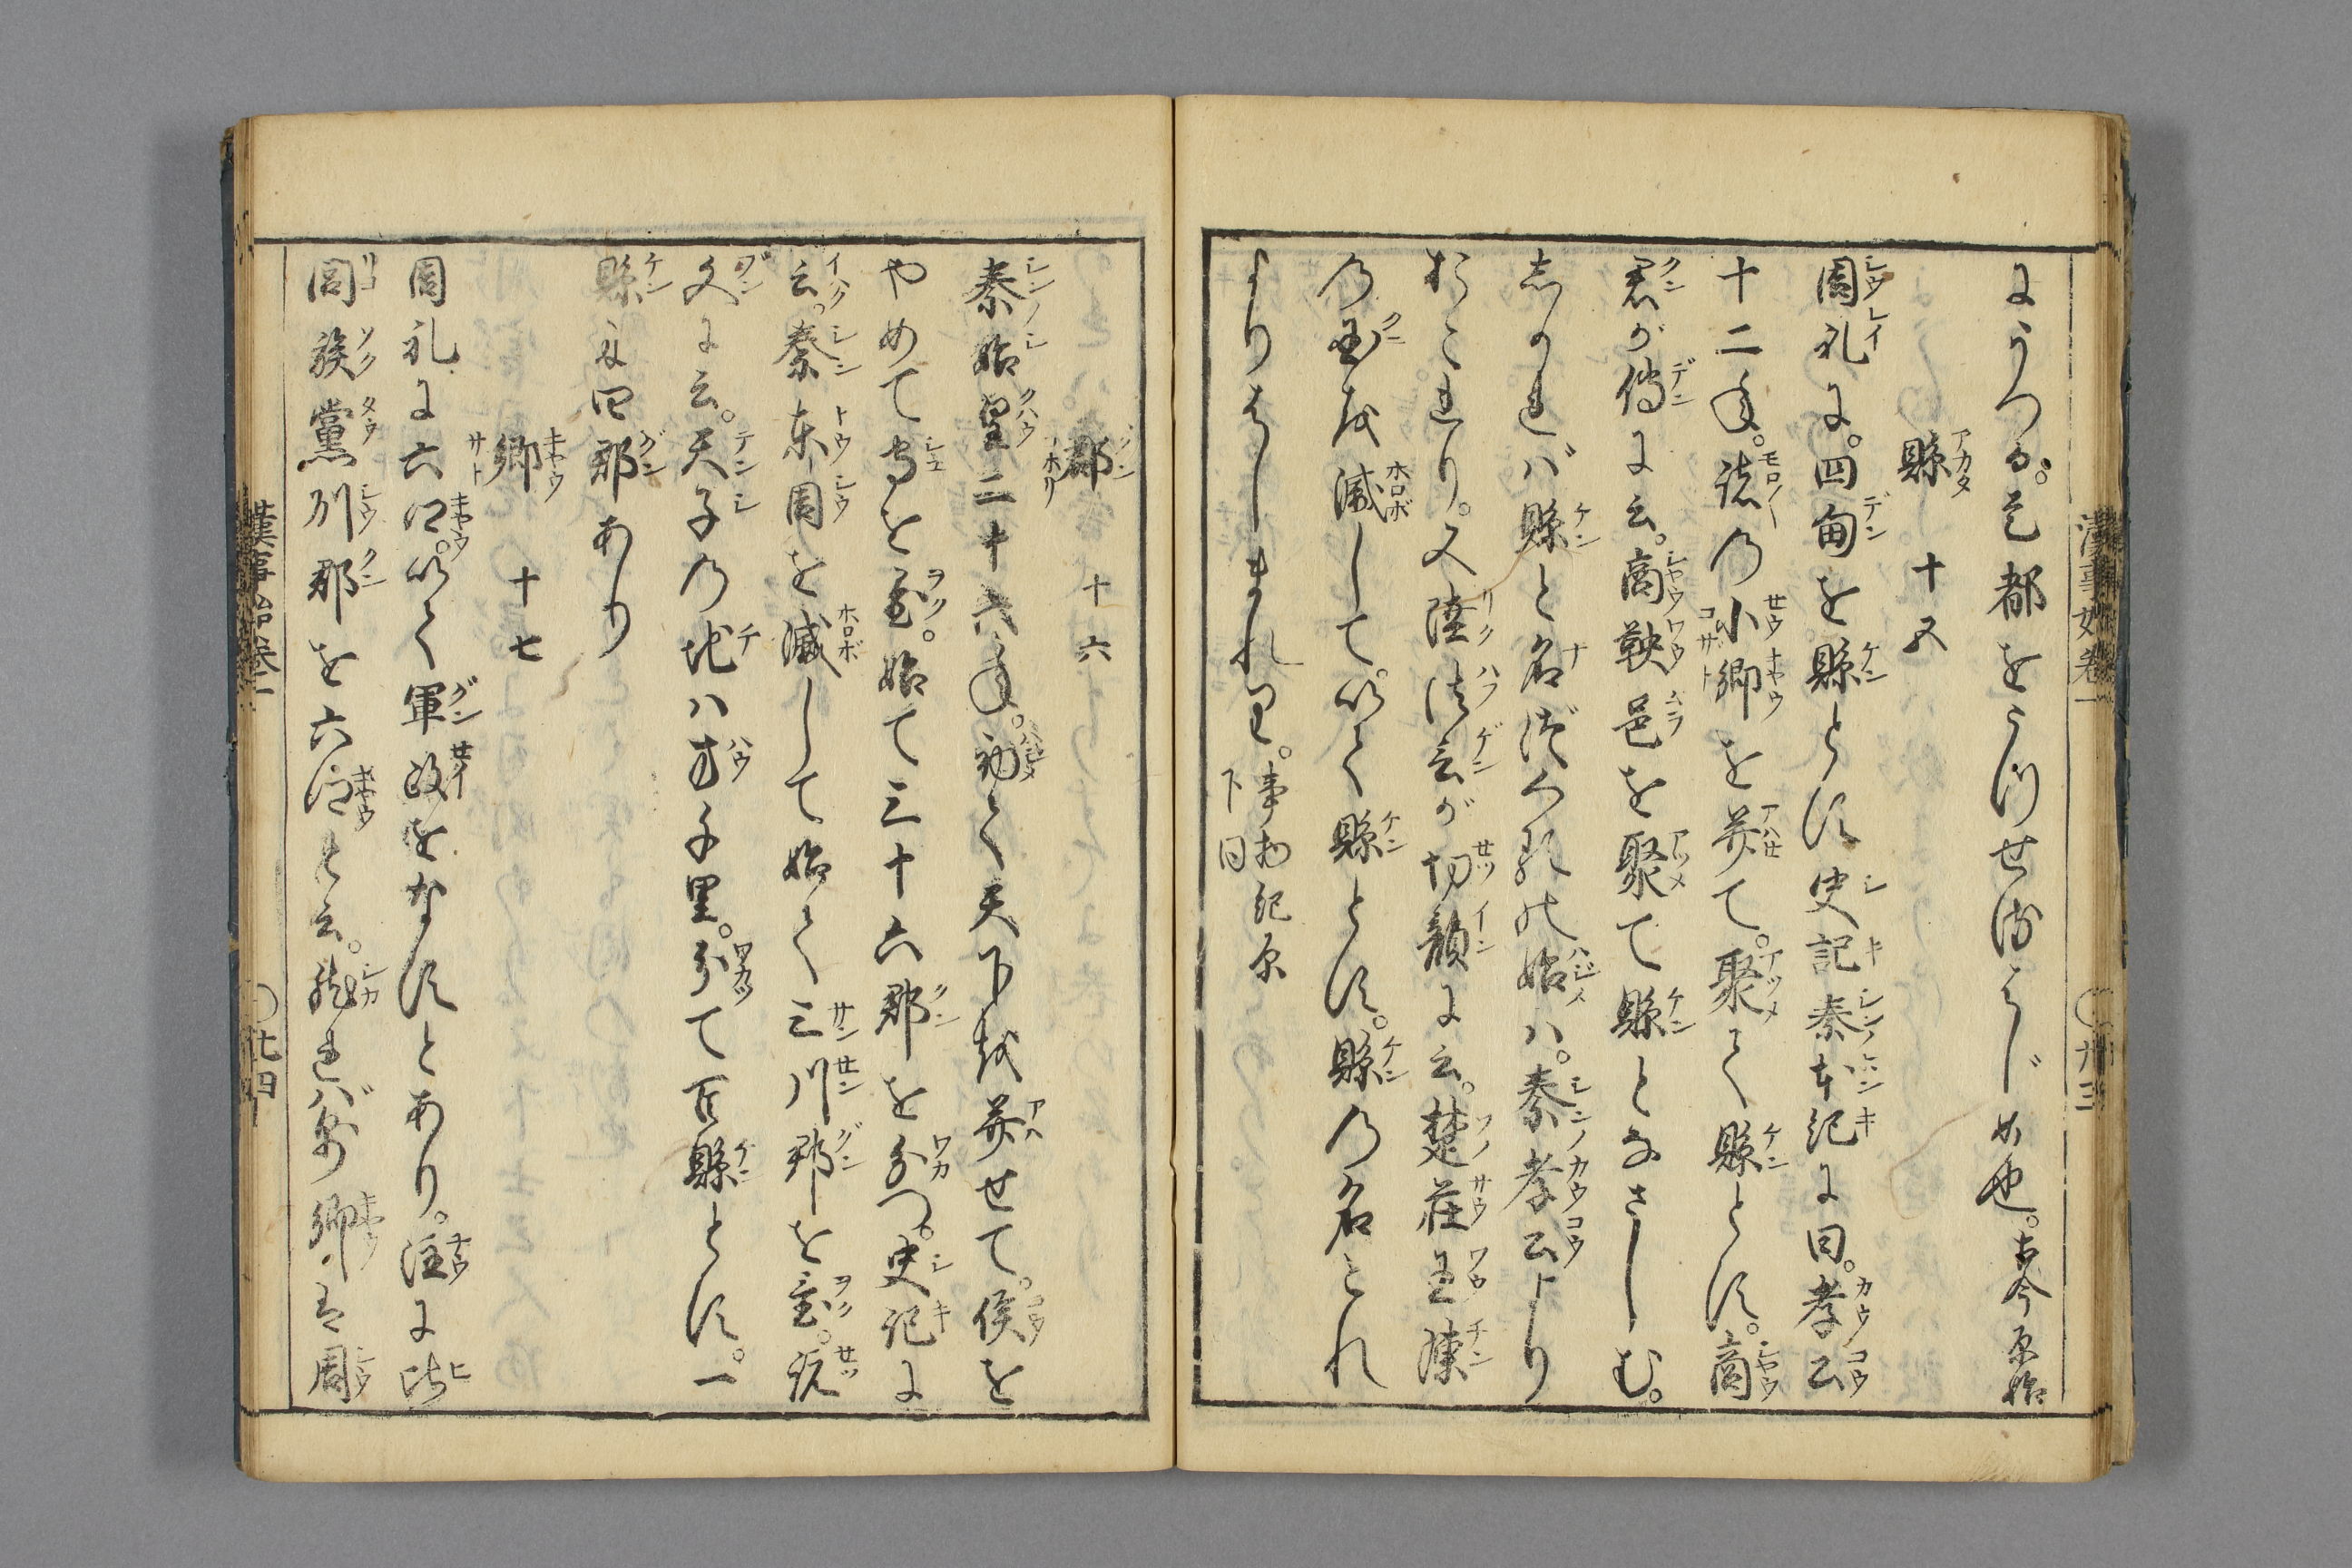 にうつる。是都をうつせるはじめ也。古今原始
縣 十五
周礼に。四甸を縣とす史記秦本紀に曰。孝公
十二年。諸の小郷を并て。聚て縣とす。商
君が傳に云。商鞅邑を聚て縣となさしむ。
しかれバ縣と名づくるの始ハ。秦孝公より
おこれり。又陸法言が切韻に云。楚荘王陳
の国を滅して。以て縣とす。縣の名これ
よりはじまれり。事物紀原下同
郡 十六
秦始皇二十六年。初て天下を并せて。侯を
やめて守を置。始て三十六郡を分つ。史記に
云。秦東周を滅して始て三川郡を置。説
文に云。天子の地ハ方千里。分て百縣とす。一
縣に四郡あり
郷 十七
周礼に六郷。以て軍政をなすとあり。注に比
閭族黨州郡を六郷と云。然れバ郷は周
漢事始巻一 ○廿三
漢事始巻一 ○廿四